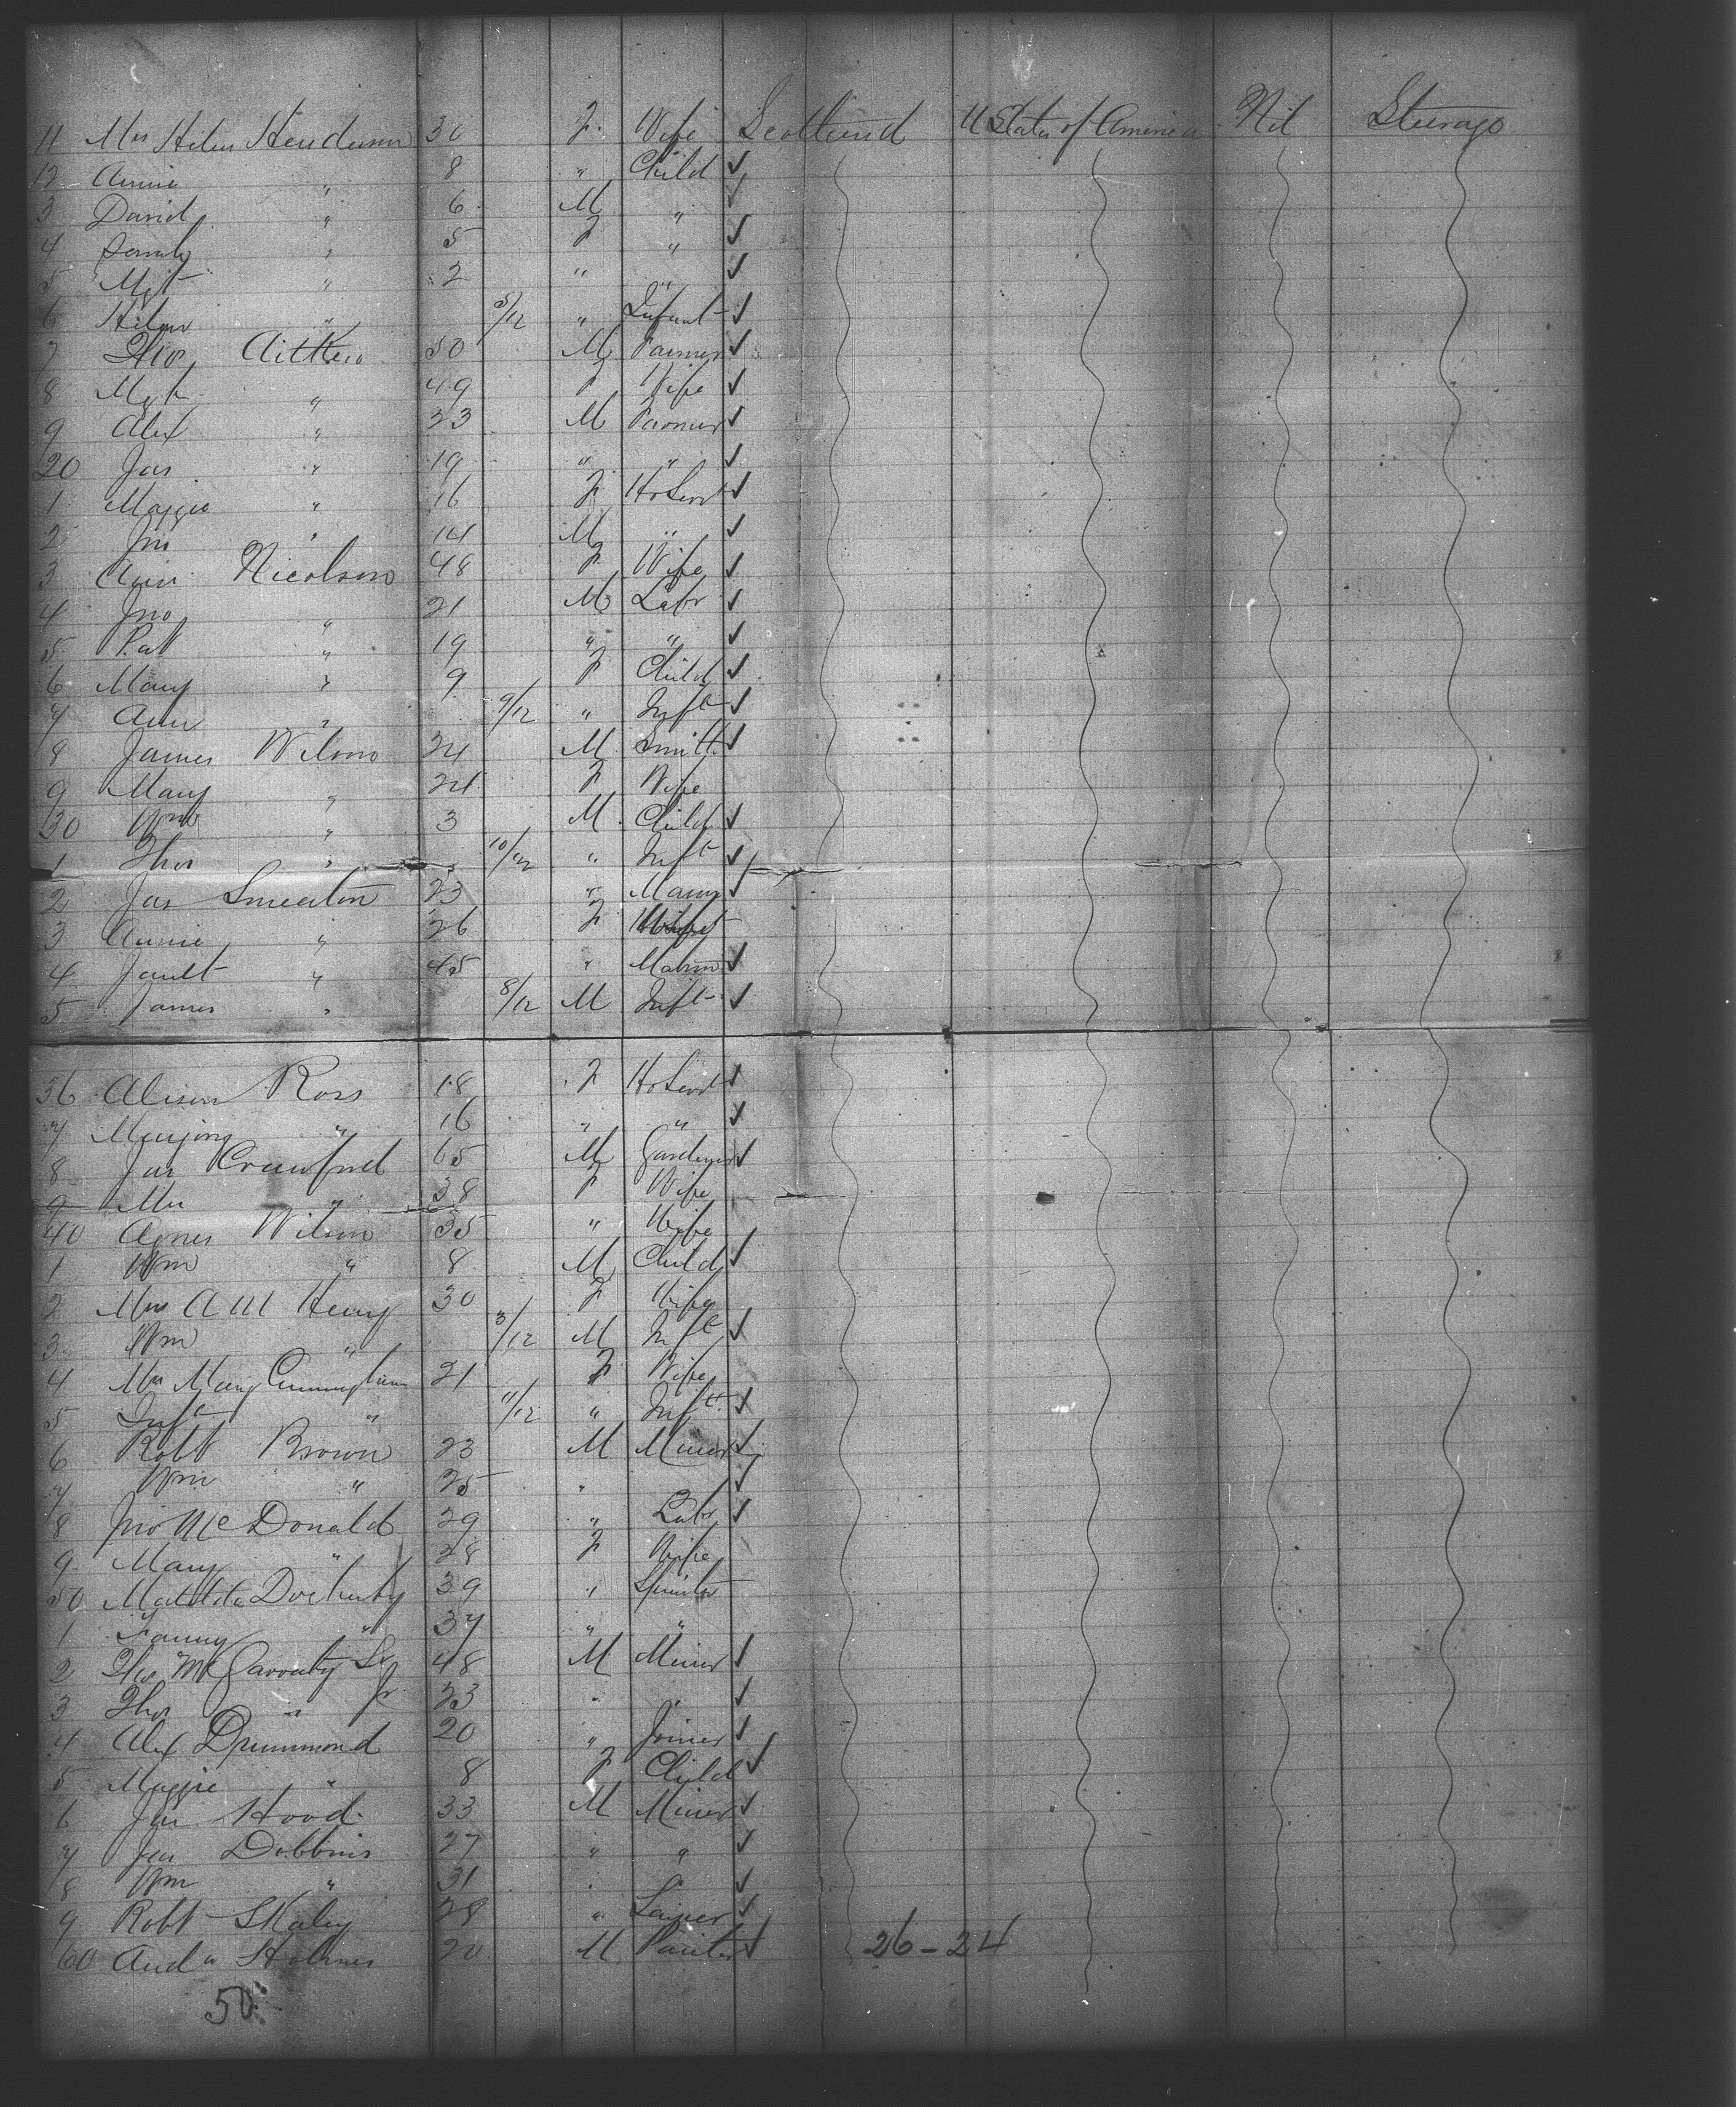 11 Mrs Helen Henderson 30 F. Wife Scotland U States of America Nil Steerage
12 Annie " 8 " Child ✓
3 David " 6 M " ✓
4 Sarah " 5 F " ✓
5 Mgt " 2 " " ✓
6 Helen " 5/12 " Infant ✓
7 Thos Aitken 50 M Farmer ✓
8 Mgt " 49 F Wife ✓
9 Alex " 23 M Farmer ✓
20 Jas " 19 " " ✓
1 Maggie " 16 F HoServt ✓
2 Jno " 14 M " ✓
3 Ann Nicolson 48 F Wife ✓
4 Jno " 21 M Labr ✓
5 Pat " 19 " " ✓
6 Mary " 9 F Child ✓
7 Ann " 9/12 " Inft ✓
8 James Wilson 24 M Smith ✓
9 Mary " 24 F Wife
30 Wm " 3 M. Child ✓
1 Thos " 10/12 " Inft ✓
2 Jas Smeaton 23 " ✓
3 Annie " 26 F
4 Janet " 45 " Matron ✓
5 James " 8/12 M Inft ✓
36 Alison Ross 18 F HoServt ✓
7 Marjory " 16 " " ✓
8 Jas Crawford 65 M Gardener ✓
9 Mrs " 38 F Wife
40 Agnes Wilson 35 " Wife
1 Wm " 8 M Child ✓
2 Mrs A M Henry 30 F Wife
3 Wm " 3/12 M Inft ✓
4 Mrs Mary Cunningham 21 F Wife
5 Inft " 11/12 " Inft ✓
6 Robt Brown 23 M Miner ✓
7 Wm " 25 " ✓
8 Jno McDonald 29 " Labr ✓
9 Mary " 28 F Wife
50 Matilda Docherty 39 " Spinster
1 Fanny " 37 " "
2 Thos McGarvaty Sr 48 M Miner ✓
3 Thos " Jr 23 " " ✓
4 Alex Drummond 20 " Joiner ✓
5 Maggie " 8 F Child ✓
6 Jas Hood 33 M Miner ✓
7 Jas Dobbins 27 " " ✓
8 Wm " 31 " " ✓
9 Robt 28 " ✓
60 Andw Holmes 20 M Painter ✓ 26 - 24
50